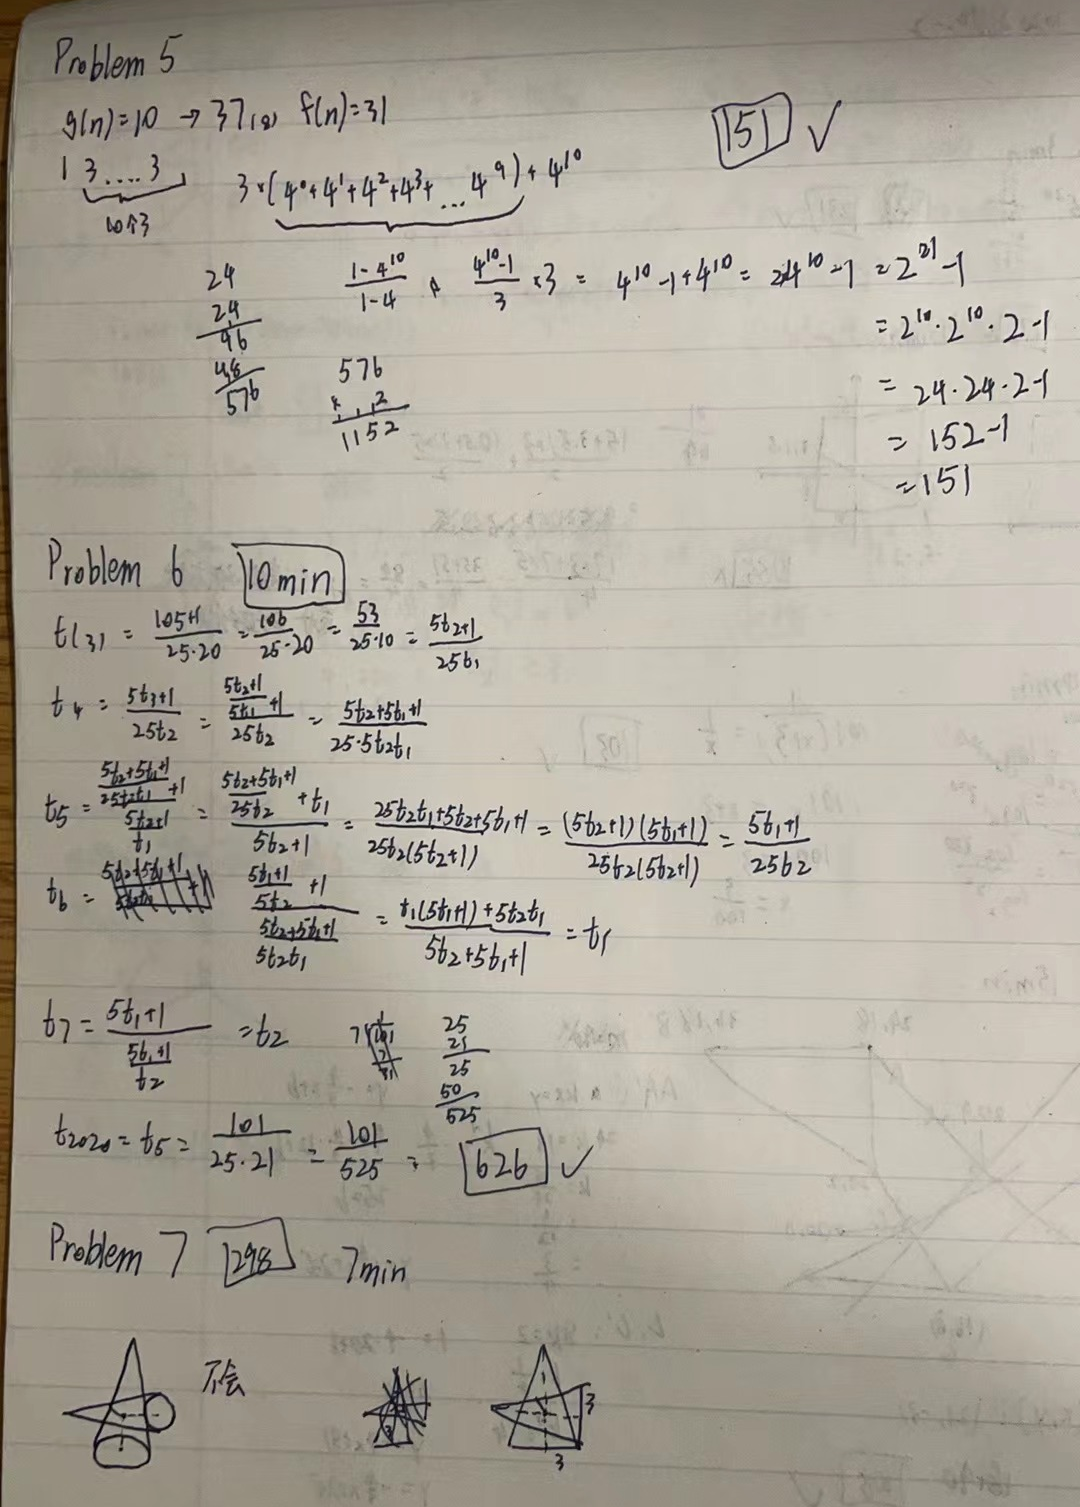 Problem 5
g(n)=10 → 37₍₈₎ f(n)=31
151 ✓
1 3....3
10个3
3×(4⁰+4¹+4²+4³+...4⁹)+4¹⁰
24
24
96
48
576
(1-4¹⁰)/(1-4)
(4¹⁰-1)/3 ×3 = 4¹⁰-1+4¹⁰ = 2·4¹⁰-1 = 2²¹-1
= 2¹⁰·2¹⁰·2-1
= 24·24·2-1
= 152-1
=151
576
× 2
1152
Problem 6 10min
t(3) = (105+1)/(25·20) = 106/(25·20) = 53/(25·10) = (5t₂+1)/(25t₁)
t₄ = (5t₃+1)/(25t₂) = ((5t₂+1)/(5t₁)+1)/(25t₂) = (5t₂+5t₁+1)/(25·5t₂t₁)
t₅ = ((5t₂+5t₁+1)/(25t₂t₁)+1)/((5t₂+1)/t₁) = ((5t₂+5t₁+1)/(25t₂)+t₁)/(5t₂+1) = (25t₂t₁+5t₂+5t₁+1)/(25t₂(5t₂+1)) = ((5t₂+1)(5t₁+1))/(25t₂(5t₂+1)) = (5t₁+1)/(25t₂)
t₆ = ((5t₁+1)/(5t₂)+1)/((5t₂+5t₁+1)/(5t₂t₁)) = (t₁(5t₁+1)+5t₂t₁)/(5t₂+5t₁+1) = t₁
t₇ = (5t₁+1)/((5t₁+1)/t₂) = t₂
25
21
25
50
525
t₂₀₂₀ = t₅ = 101/(25·21) = 101/525 = 626 ✓
Problem 7 298 7min
不会
3
3